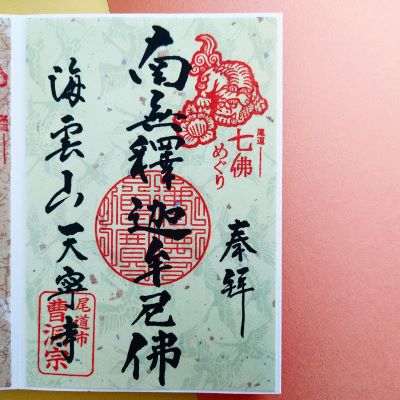 奉拝
尾道
七佛
めぐり
南無釋迦牟尼佛
海雲山天寧寺
尾道市
曹洞宗